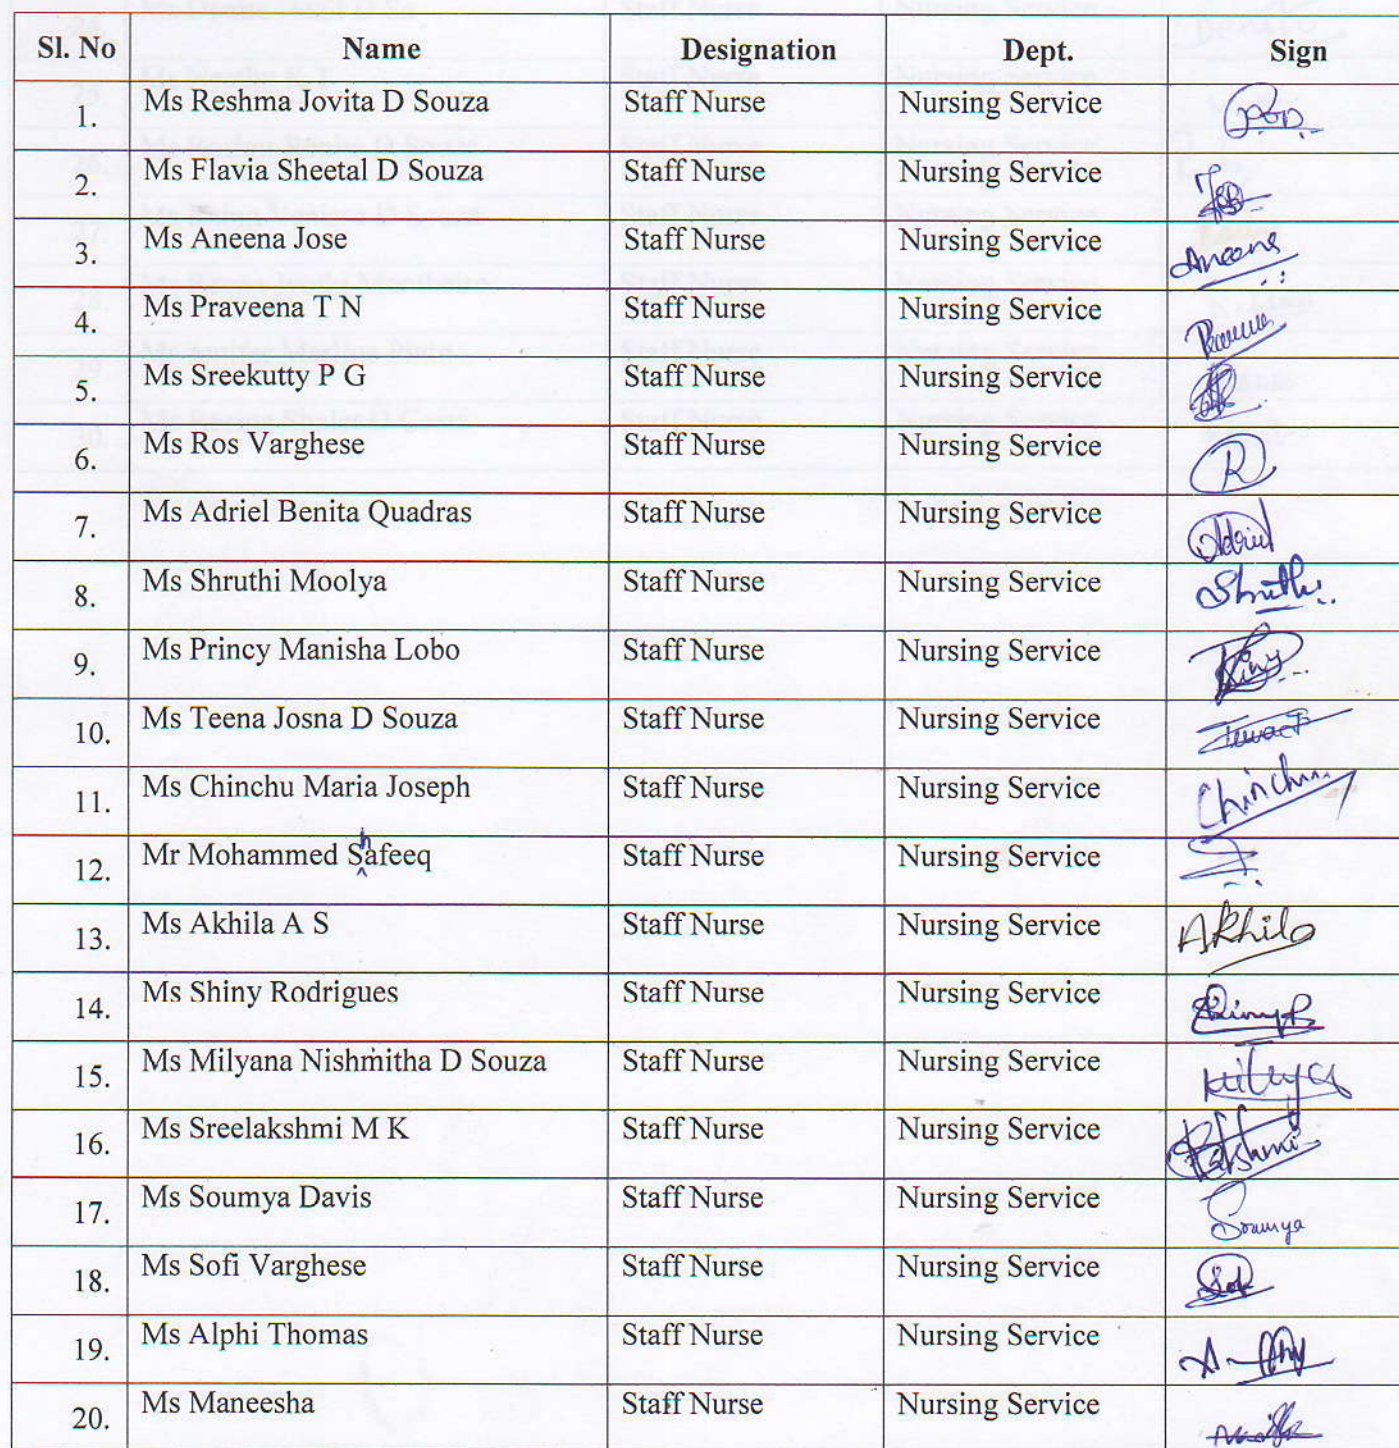 Sl. No Name Designation Dept. Sign
1. Ms Reshma Jovita D Souza Staff Nurse Nursing Service
2. Ms Flavia Sheetal D Souza Staff Nurse Nursing Service
3. Ms Aneena Jose Staff Nurse Nursing Service Aneena
4. Ms Praveena T N Staff Nurse Nursing Service
5. Ms Sreekutty P G Staff Nurse Nursing Service
6. Ms Ros Varghese Staff Nurse Nursing Service R
7. Ms Adriel Benita Quadras Staff Nurse Nursing Service Adriel
8. Ms Shruthi Moolya Staff Nurse Nursing Service Shruthi
9. Ms Princy Manisha Lobo Staff Nurse Nursing Service
10. Ms Teena Josna D Souza Staff Nurse Nursing Service
11. Ms Chinchu Maria Joseph Staff Nurse Nursing Service Chinchu
12. Mr Mohammed Shafeeq Staff Nurse Nursing Service
13. Ms Akhila A S Staff Nurse Nursing Service Akhila
14. Ms Shiny Rodrigues Staff Nurse Nursing Service
15. Ms Milyana Nishmitha D Souza Staff Nurse Nursing Service
16. Ms Sreelakshmi M K Staff Nurse Nursing Service
17. Ms Soumya Davis Staff Nurse Nursing Service Soumya
18. Ms Sofi Varghese Staff Nurse Nursing Service
19. Ms Alphi Thomas Staff Nurse Nursing Service
20. Ms Maneesha Staff Nurse Nursing Service